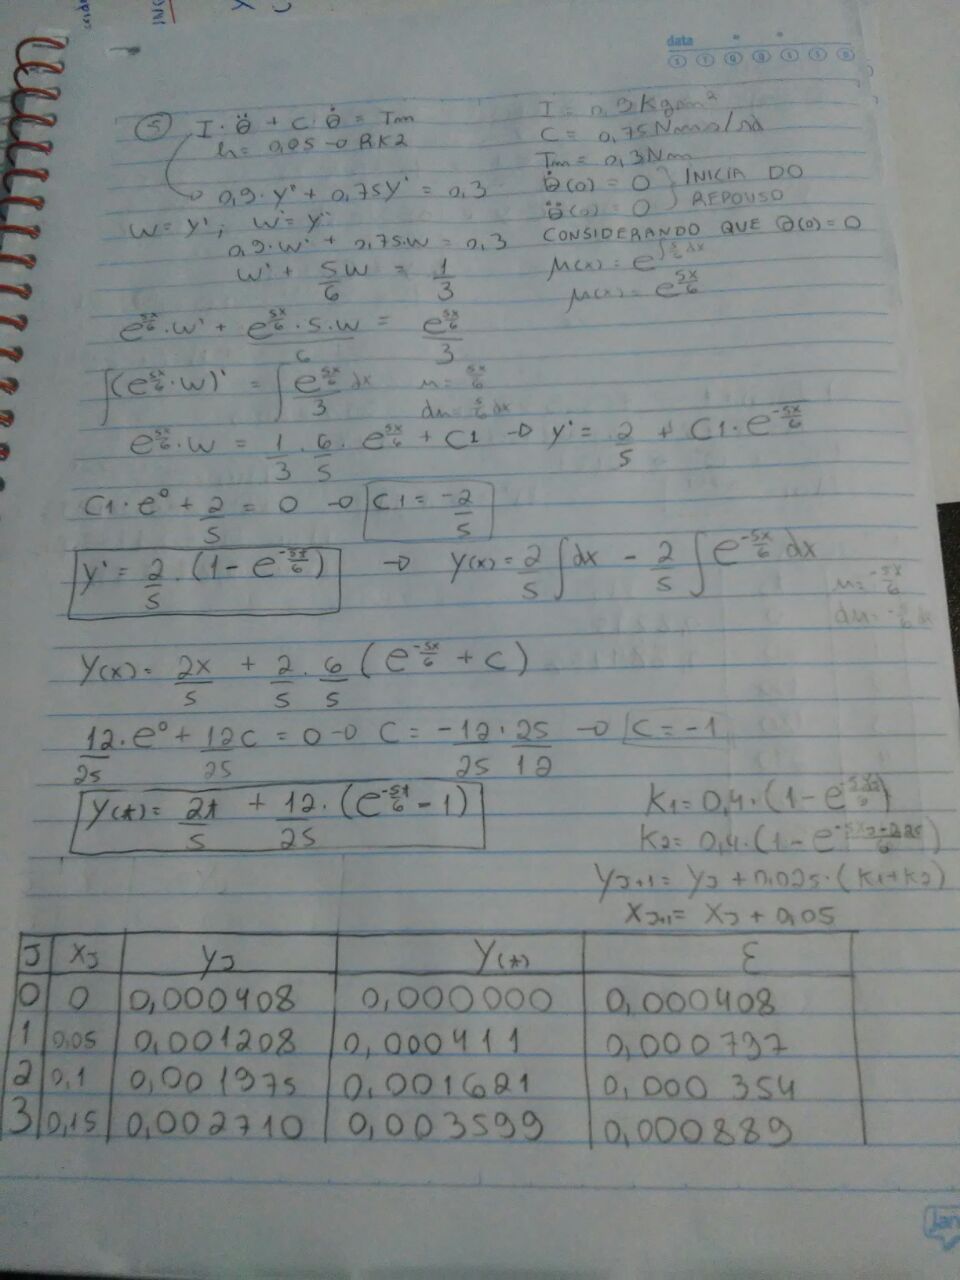 data
5) I·θ̈ + C·θ̇ = Tm
h = 0,05 → RK2
I = 0,9 Kgm²
C = 0,75 Nms/rd
Tm = 0,3 Nm
→ 0,9·y'' + 0,75y' = 0,3
θ̇(0) = 0 } INICIA DO
θ̈(0) = 0 } REPOUSO
W = y' ; W' = y''
0,9·W' + 0,75·W = 0,3
CONSIDERANDO QUE θ(0) = 0
W' + 5W/6 = 1/3
μ(x) = e^(∫5/6 dx)
μ(x) = e^(5x/6)
e^(5x/6)·W' + e^(5x/6)·5·W/6 = e^(5x/6)/3
∫(e^(5x/6)·W)' = ∫ e^(5x/6)/3 dx
u = 5x/6
du = 5/6 dx
e^(5x/6)·W = 1/3·6/5·e^(5x/6) + C1 → y' = 2/5 + C1·e^(-5x/6)
C1·e⁰ + 2/5 = 0 → C1 = -2/5
y' = 2/5·(1 - e^(-5t/6)) → y(x) = 2/5 ∫dx - 2/5 ∫e^(-5x/6) dx
u = -5x/6
du = -5/6 dx
y(x) = 2x/5 + 2/5·6/5 (e^(-5x/6) + C)
12/25·e⁰ + 12C/25 = 0 → C = -12/25·25/12 → C = -1
y(t) = 2t/5 + 12/25·(e^(-5t/6) - 1)
K1 = 0,4·(1 - e
K2 = 0,4·(1 - e
yJ+1 = yJ + 0,025·(K1+K2)
XJ+1 = XJ + 0,05
J XJ yJ y(t) ε
0 0 0,000408 0,000000 0,000408
1 0,05 0,001208 0,000411 0,000797
2 0,1 0,001975 0,001621 0,000354
3 0,15 0,002710 0,003599 0,000889
Jan